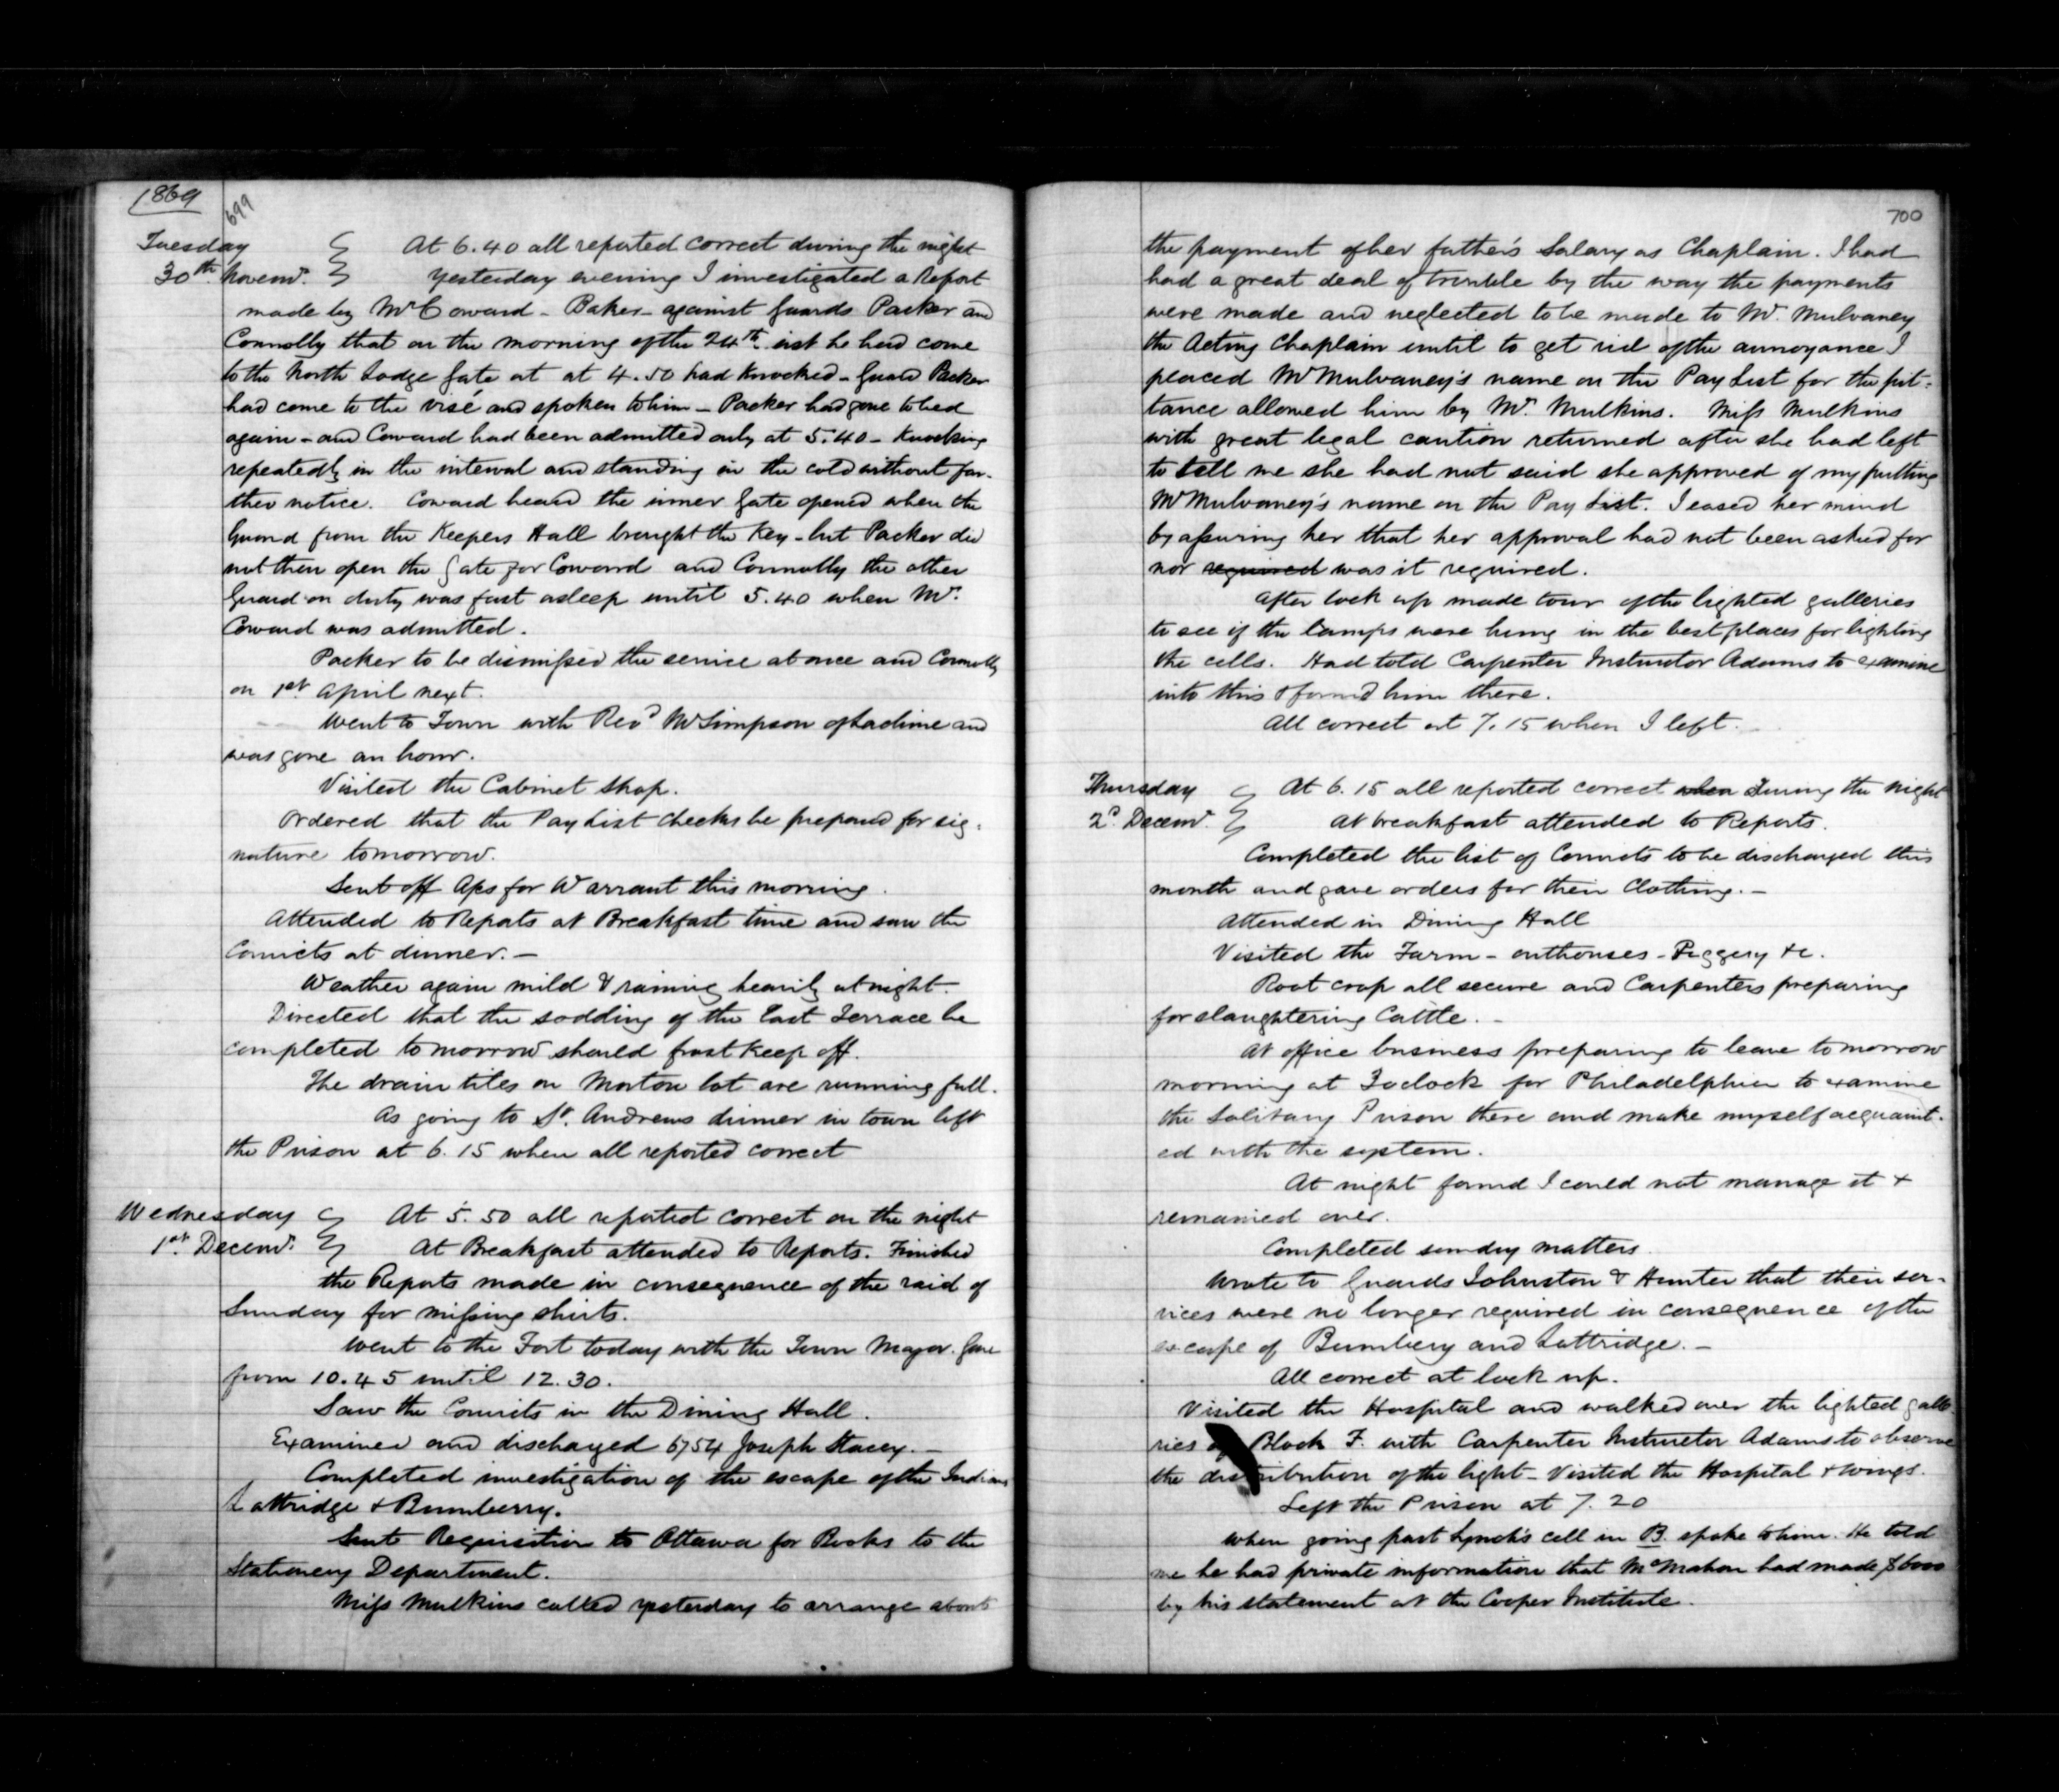 1869
699
Tuesday At 6.40 all reported correct during the night
30th Novemr. Yesterday evening I investigated a Report
made by Mr Coward - Baker - against Guards Packer and
Connolly that on the morning of the 24th inst he had come
to the North Lodge Gate at at 4.50 had knocked - Guard Packer
had come to the visé and spoken to him - Packer had gone to bed
again - and Coward had been admitted only at 5.40 - knocking
repeatedly in the interval and standing in the cold without far-
ther notice. Coward heard the inner Gate opened when the
Guard from the Keepers Hall brought the Key - but Packer did
not then open the Gate for Coward and Connolly the other
Guard on duty was fast asleep until 5.40 when Mr.
Coward was admitted.
Packer to be dismissed the service at once and Connolly
on 1st April next.
Went to Town with Revd Mr Simpson of Lachine and
was gone an hour.
Visited the Cabinet Shop.
Ordered that the Pay List checks be prepared for sig-
nature tomorrow.
Sent off Aps for Warrant this morning.
Attended to Reports at Breakfast time and saw the
Convicts at dinner. -
Weather again mild & raining heavily at night.
Directed that the sodding of the East Terrace be
completed tomorrow should frost keep off.
The drain tiles on Morton lot are running full.
As going to St. Andrews dinner in town left
the Prison at 6.15 when all reported correct
Wednesday At 5.50 all reported correct on the night
1st. Decemr. At Breakfast attended to Reports. Finished
the Reports made in consequence of the raid of
Sunday for missing shirts.
Went to the Fort today with the Town Major. Gone
from 10.45 until 12.30.
Saw the Convicts in the Dining Hall.
Examined and discharged 6754 Joseph Stacey. -
Completed investigation of the escape of the Indians
Lattridge & Bumberry.
Sent Requisition to Ottawa for Books to the
Stationery Department.
Miss Mulkins called yesterday to arrange about
700
the payment of her father's Salary as Chaplain. I had
had a great deal of trouble by the way the payments
were made and neglected to be made to Mr. Mulvaney
the Acting Chaplain until to get rid of the annoyance I
placed Mr Mulvaney's name on the Pay List for the pit-
tance allowed him by Mr. Mulkins. Miss Mulkins
with great legal caution returned after she had left
to tell me she had not said she approved of my putting
Mr Mulvaney's name on the Pay List. I eased her mind
by assuring her that her approval had not been asked for
nor required was it required.
After lock up made tour of the lighted galleries
to see if the lamps were hung in the best places for lighting
the cells. Had told Carpenter Instructor Adams to examine
into this & found him there.
All correct at 7.15 when I left.
Thursday At 6.15 all reported correct when During the night
2d. Decemr. At breakfast attended to Reports.
Completed the list of Convicts to be discharged this
month and gave orders for their Clothing. -
Attended in Dining Hall
Visited the Farm - outhouses - Piggery &c.
Root crop all secure and Carpenters preparing
for slaughtering Cattle. -
At office business preparing to leave tomorrow
morning at 3 oclock for Philadelphia to examine
the Solitary Prison there and make myself acquaint-
ed with the system.
At night found I could not manage it &
remained over.
Completed sundry matters.
Wrote to Guards Johnston & Hunter that their ser-
vices were no longer required in consequence of the
escape of Bumbery and Lattridge. -
All correct at lock up.
Visited the Hospital and walked over the lighted galle-
ries of Block F. with Carpenter Instructor Adams to observe
the distribution of the light - Visited the Hospital & wings.
Left the Prison at 7.20
When going past Lynch's cell in B. spoke to him. He told
me he had private information that McMahon had made $6000
by his statement at the Cooper Institute.